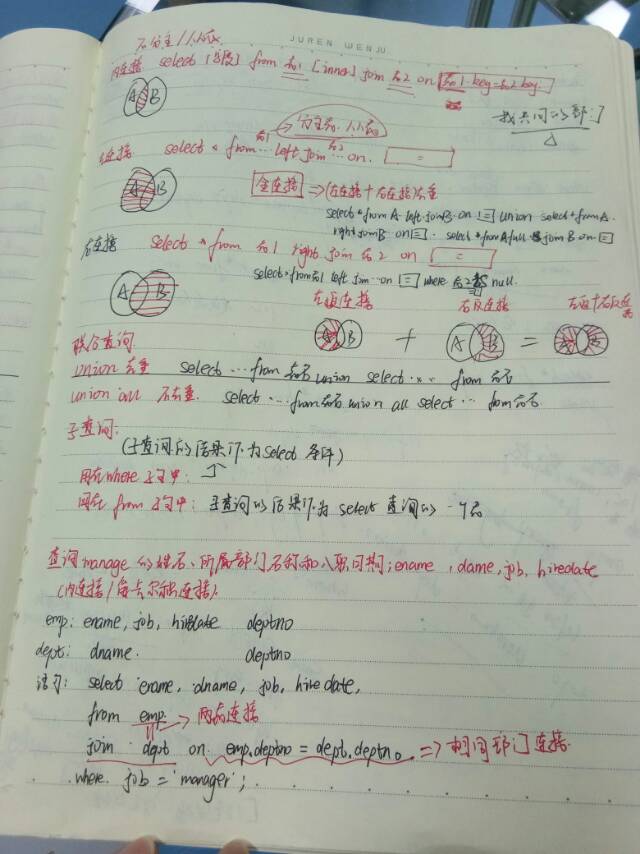 JUREN WENJU
不分主/从表
内连接 select [字段] from 表1 [inner] join 表2 on 表1.key=表2.key.
A B
找共同的部门
分主表.从表
表1 表2
左连接 select * from … left join … on. =
A B
全连接 => (左连接+右连接)去重
select * from A left join B on = union select * from A.
right join B on = . select * from A full join B on =
右连接 select * from 表1 right join 表2 on =
select * from 表1 left join … on = where 表2 null.
A B
左反连接 右反连接 左反+右反连接
A B + A B = A B
联合查询
union 去重 select … from 表名 union select … from 表名
union all 不去重. select … from 表名 union all select … from 表名.
子查询:
(子查询的结果作为select 条件)
用在where子句中:
用在from子句中: 子查询的结果作为select查询的一个表
查询manage的姓名、所属部门名称和入职日期; ename, dame, job, hiredate
(内连接/笛卡尔积连接).
emp: ename, job, hiredate deptno
dept: dname. deptno
语句: select ename, dname, job, hiredate,
from emp → 两表连接
join dept on emp.deptno = dept.deptno => 相同部门连接.
where job = 'manager';